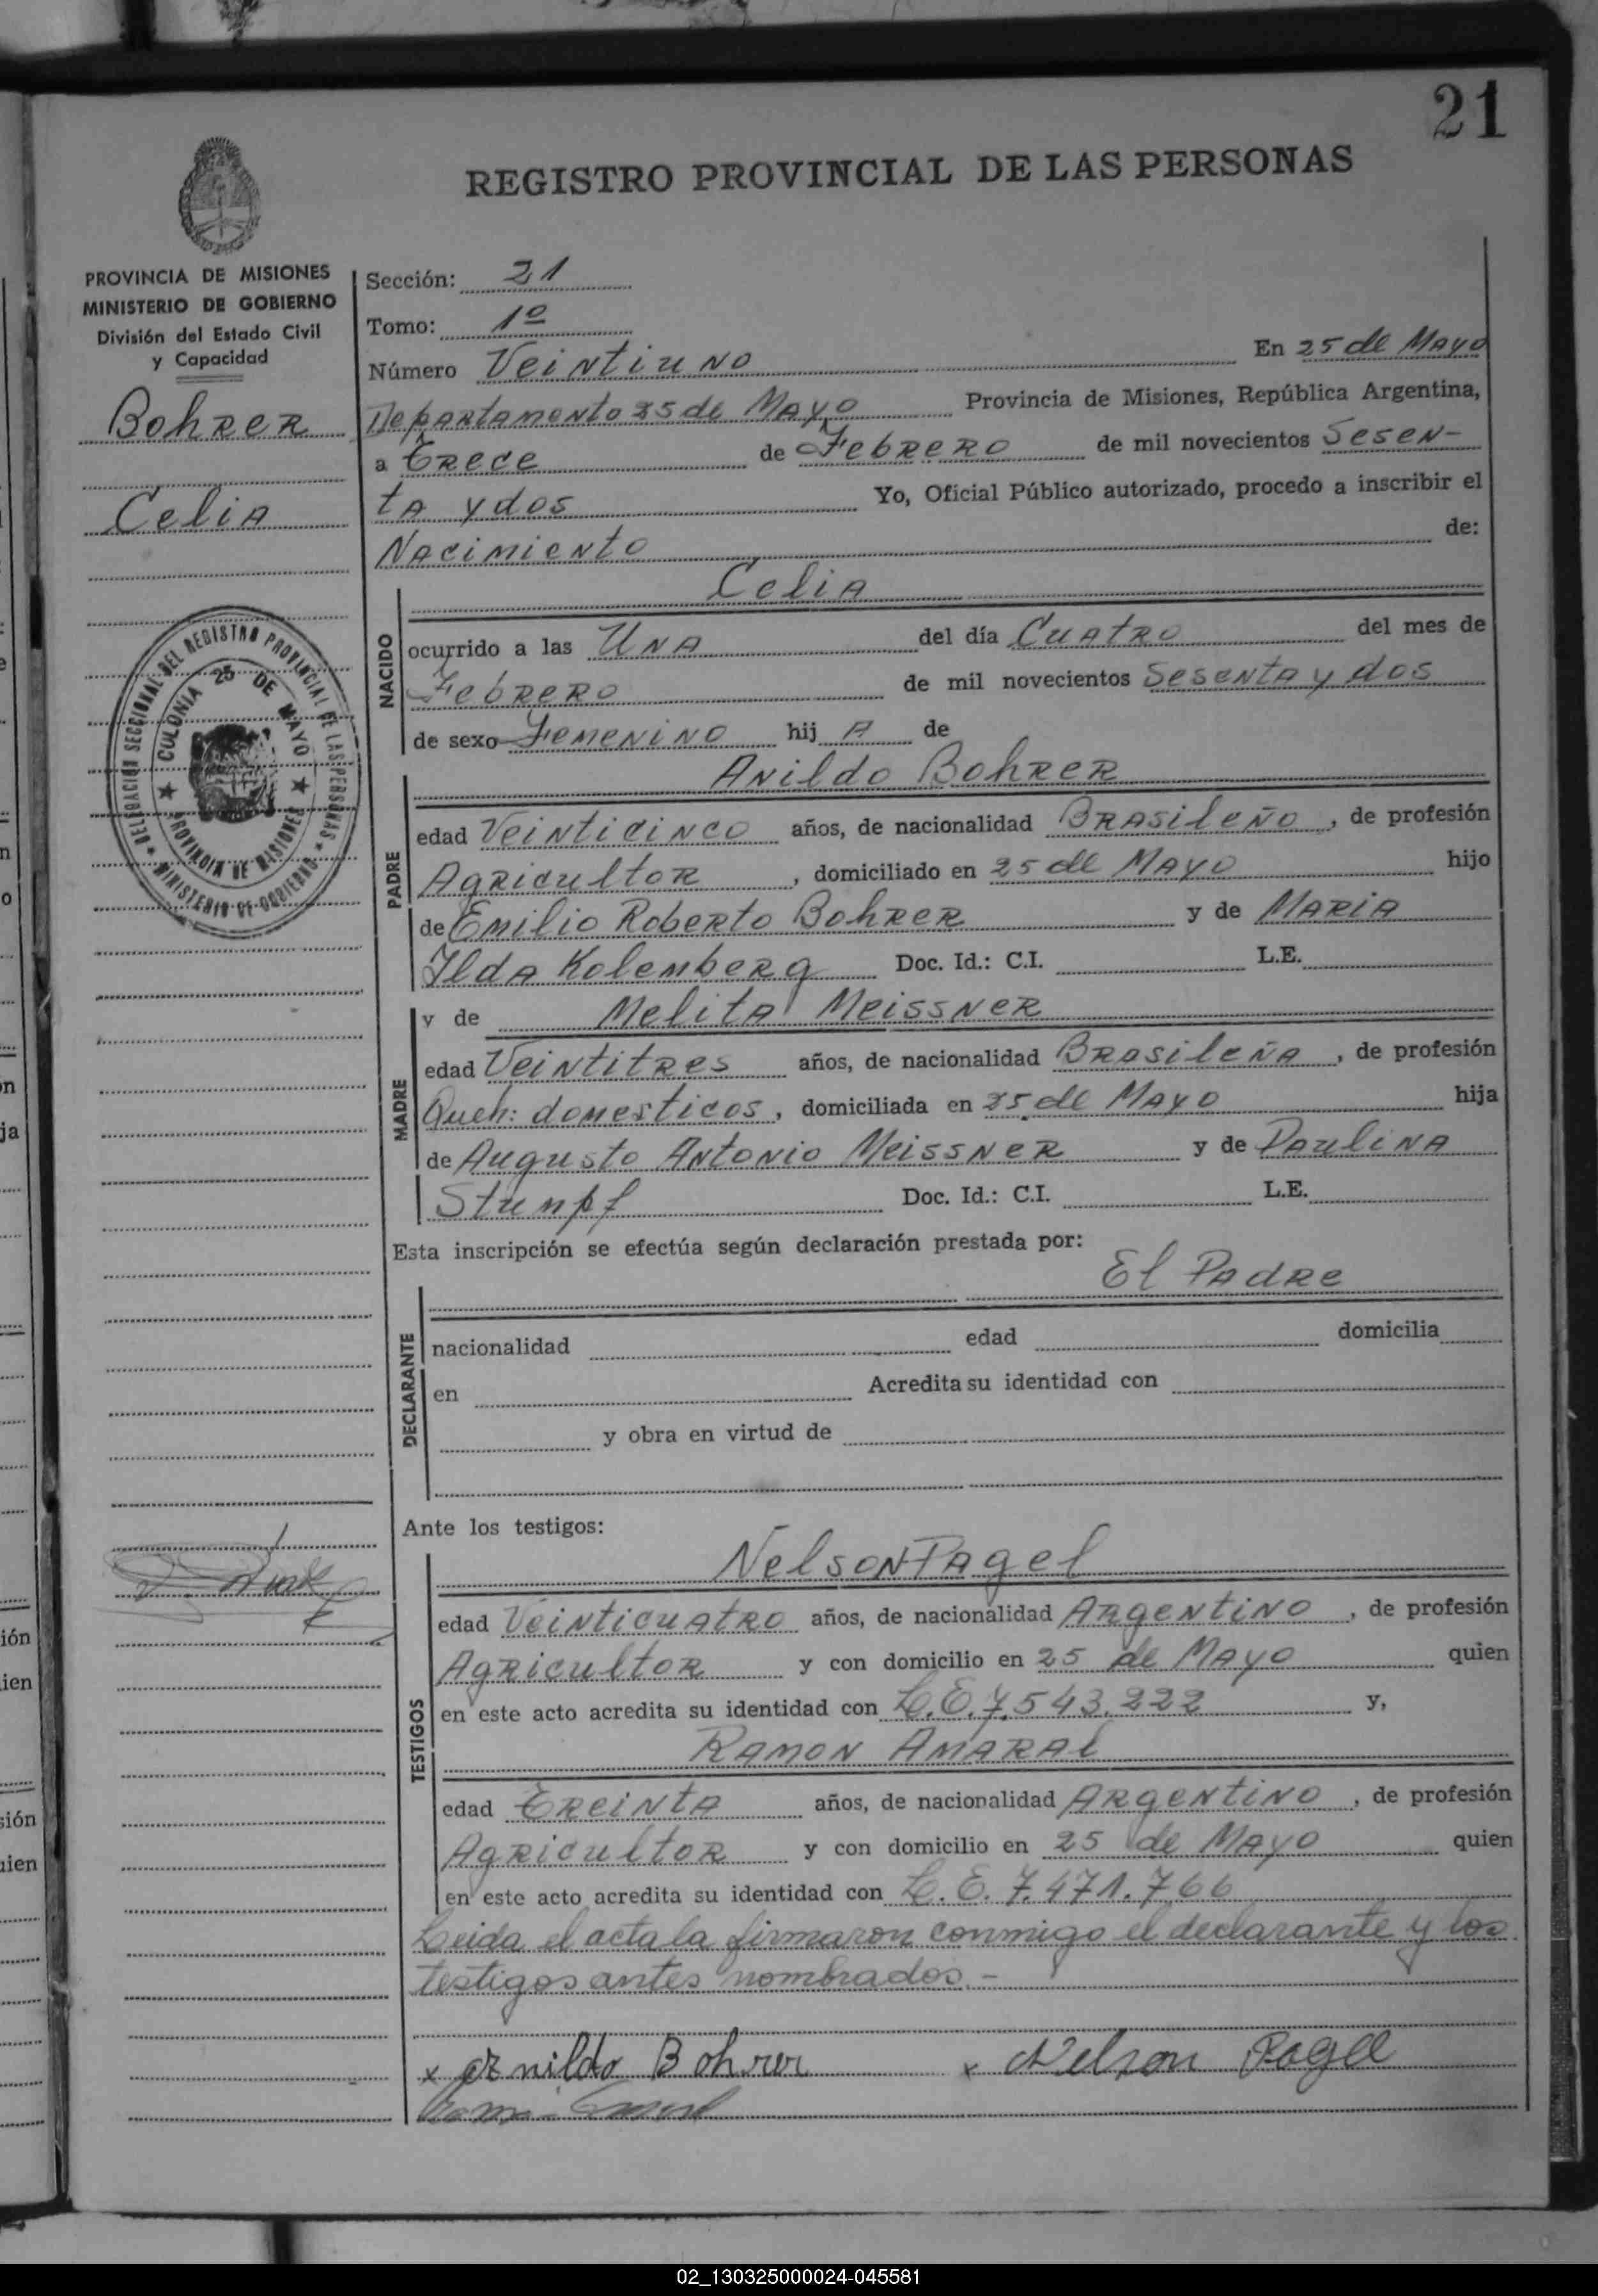 21
REGISTRO PROVINCIAL DE LAS PERSONAS
PROVINCIA DE MISIONES
MINISTERIO DE GOBIERNO
División del Estado Civil
y Capacidad
Bohrer
Celia
DELEGACIÓN SECCIONAL DEL REGISTRO PROVINCIAL DE LAS PERSONAS
★ MINISTERIO DE GOBIERNO ★
★ COLONIA 25 DE MAYO ★
PROVINCIA DE MISIONES
Sección: 21
Tomo: 1º
Número Veintiuno En 25 de Mayo
Departamento 25 de Mayo Provincia de Misiones, República Argentina,
a Trece de Febrero de mil novecientos Sesen-
ta y dos Yo, Oficial Público autorizado, procedo a inscribir el
Nacimiento de:
NACIDO
Celia
ocurrido a las Una del día Cuatro del mes de
Febrero de mil novecientos Sesenta y dos
de sexo Femenino hij a de
PADRE
Anildo Bohrer
edad Veinticinco años, de nacionalidad Brasileño, de profesión
Agricultor, domiciliado en 25 de Mayo hijo
de Emilio Roberto Bohrer y de Maria
Ilda Kolemberg Doc. Id.: C.I. L.E.
MADRE
y de Melita Meissner
edad Veintitres años, de nacionalidad Brasileña, de profesión
Queh: domesticos, domiciliada en 25 de Mayo hija
de Augusto Antonio Meissner y de Paulina
Stumpf Doc. Id.: C.I. L.E.
Esta inscripción se efectúa según declaración prestada por:
El Padre
DECLARANTE
nacionalidad edad domicilia
en Acredita su identidad con
y obra en virtud de
Ante los testigos:
TESTIGOS
Nelson Pagel
edad Veinticuatro años, de nacionalidad Argentino, de profesión
Agricultor y con domicilio en 25 de Mayo quien
en este acto acredita su identidad con L.E. 7.543.222 y,
Ramon Amaral
edad Treinta años, de nacionalidad Argentino, de profesión
Agricultor y con domicilio en 25 de Mayo quien
en este acto acredita su identidad con L.E. 7.471.766
Leida el acta la firmaron conmigo el declarante y los
testigos antes nombrados.-
x Anildo Bohrer x Nelson Pagel
02_130325000024-045581